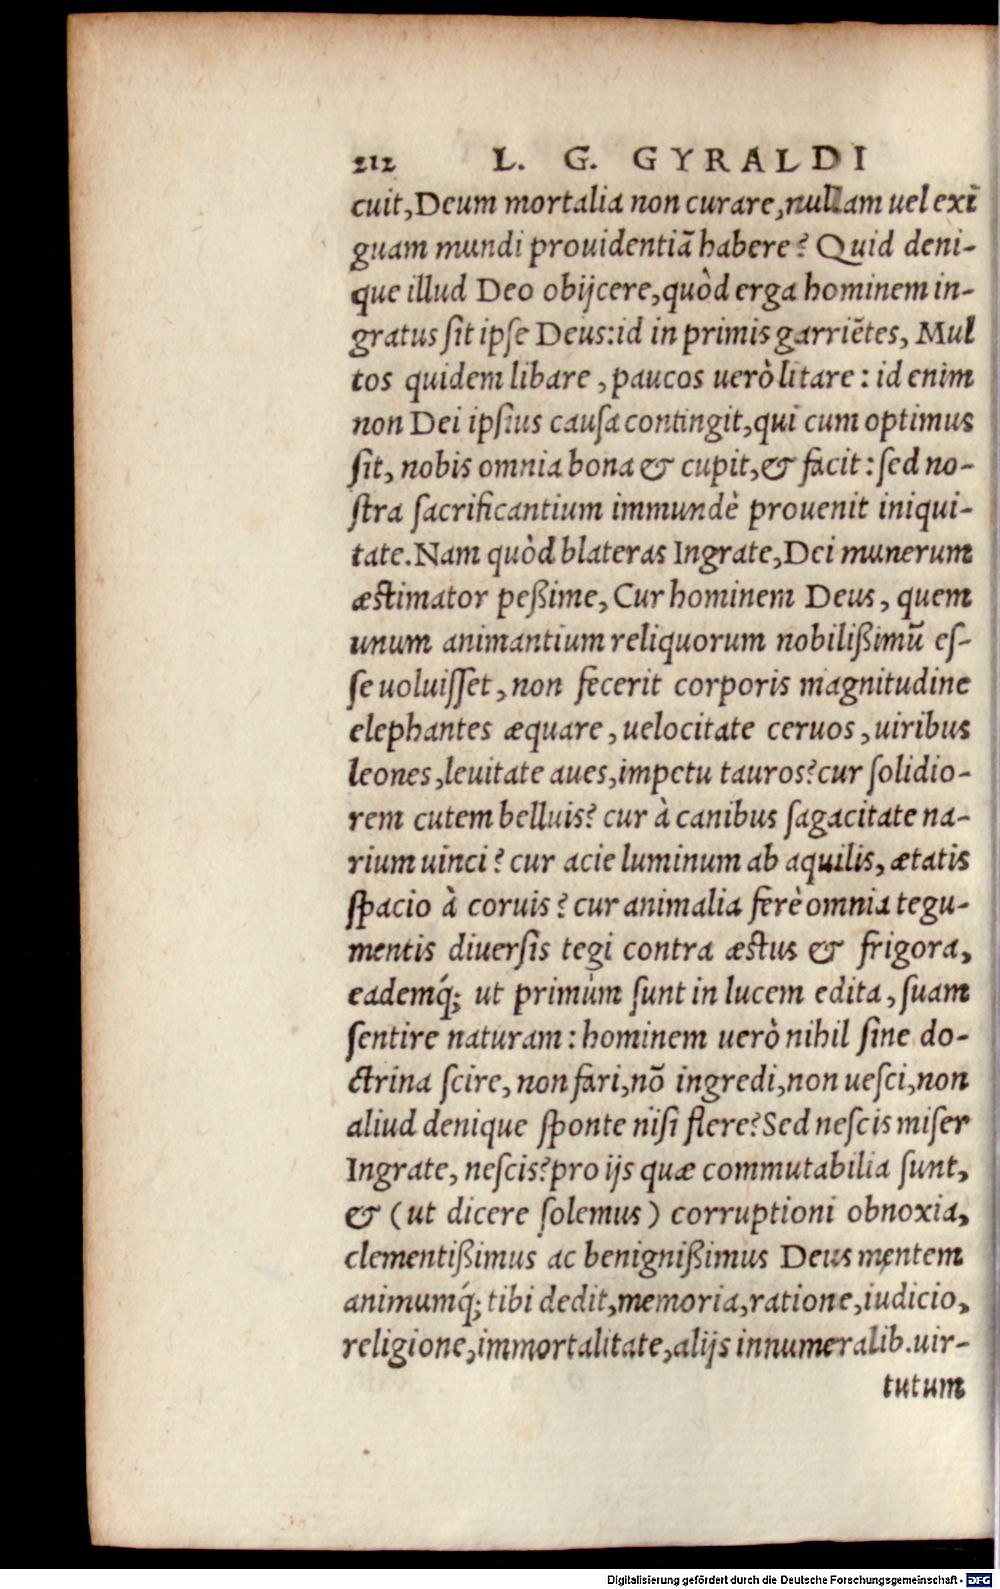 212 L. G. GYRALDI
cuit,Deum mortalia non curare,nullam uel exi̅
guam mundi prouidentiā habere? Quid deni-
que illud Deo obijcere,quòd erga hominem in-
gratus ſit ipſe Deus:id in primis garriētes, Mul
tos quidem libare, paucos uerò litare: id enim
non Dei ipſius cauſa contingit,qui cum optimus
ſit, nobis omnia bona & cupit,& facit: ſed no-
ſtra ſacrificantium immundè prouenit iniqui-
tate.Nam quòd blateras Ingrate,Dei munerum
æſtimator peßime, Cur hominem Deus, quem
unum animantium reliquorum nobilißimū eſ-
ſe uoluiſſet, non fecerit corporis magnitudine
elephantes æquare, uelocitate ceruos, uiribus
leones,leuitate aues,impetu tauros?cur ſolidio-
rem cutem belluis? cur à canibus ſagacitate na-
rium uinci? cur acie luminum ab aquilis, ætatis
ſpacio à coruis? cur animalia ferè omnia tegu-
mentis diuerſis tegi contra æſtus & frigora,
eademq́; ut primùm ſunt in lucem edita, ſuam
ſentire naturam: hominem uerò nihil ſine do-
ctrina ſcire, non fari,nō ingredi,non ueſci,non
aliud denique ſponte niſi flere?Sed neſcis miſer
Ingrate, neſcis?pro ijs quæ commutabilia ſunt,
& (ut dicere ſolemus) corruptioni obnoxia,
clementißimus ac benignißimus Deus mentem
animumq́; tibi dedit,memoria,ratione,iudicio,
religione,immortalitate,alijs innumeralib.uir-
tutum
Digitalisierung gefördert durch die Deutsche Forschungsgemeinschaft - DFG